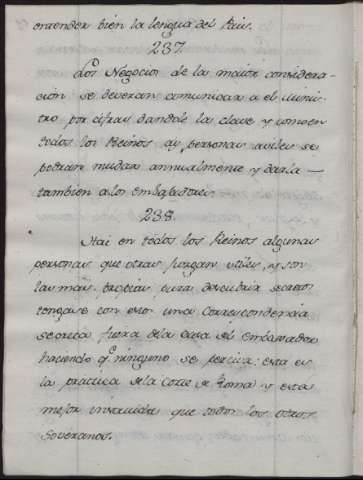 entender bien la lengua del Pais.
237.
Los Negocios de la maior considera-
cion se deveran comunicar a el Minis-
tro por cifras dandole la clave y como en
todos los Reinos ay personas utiles se
podran mudar annualmente y darla
tambien a los embajadores.
238.
Hai en todos los Reinos algunas
personas que otras juzgan utiles, y son
las mas propias para descubrir secretos
tengase con estos una Correspondencia
secreta fuera de la casa del embaxador
haciendo q.e ninguno se perciva: esta es
la practica de la Corte de Roma y esta
mejor instruida que todos los otros
Soveranos.